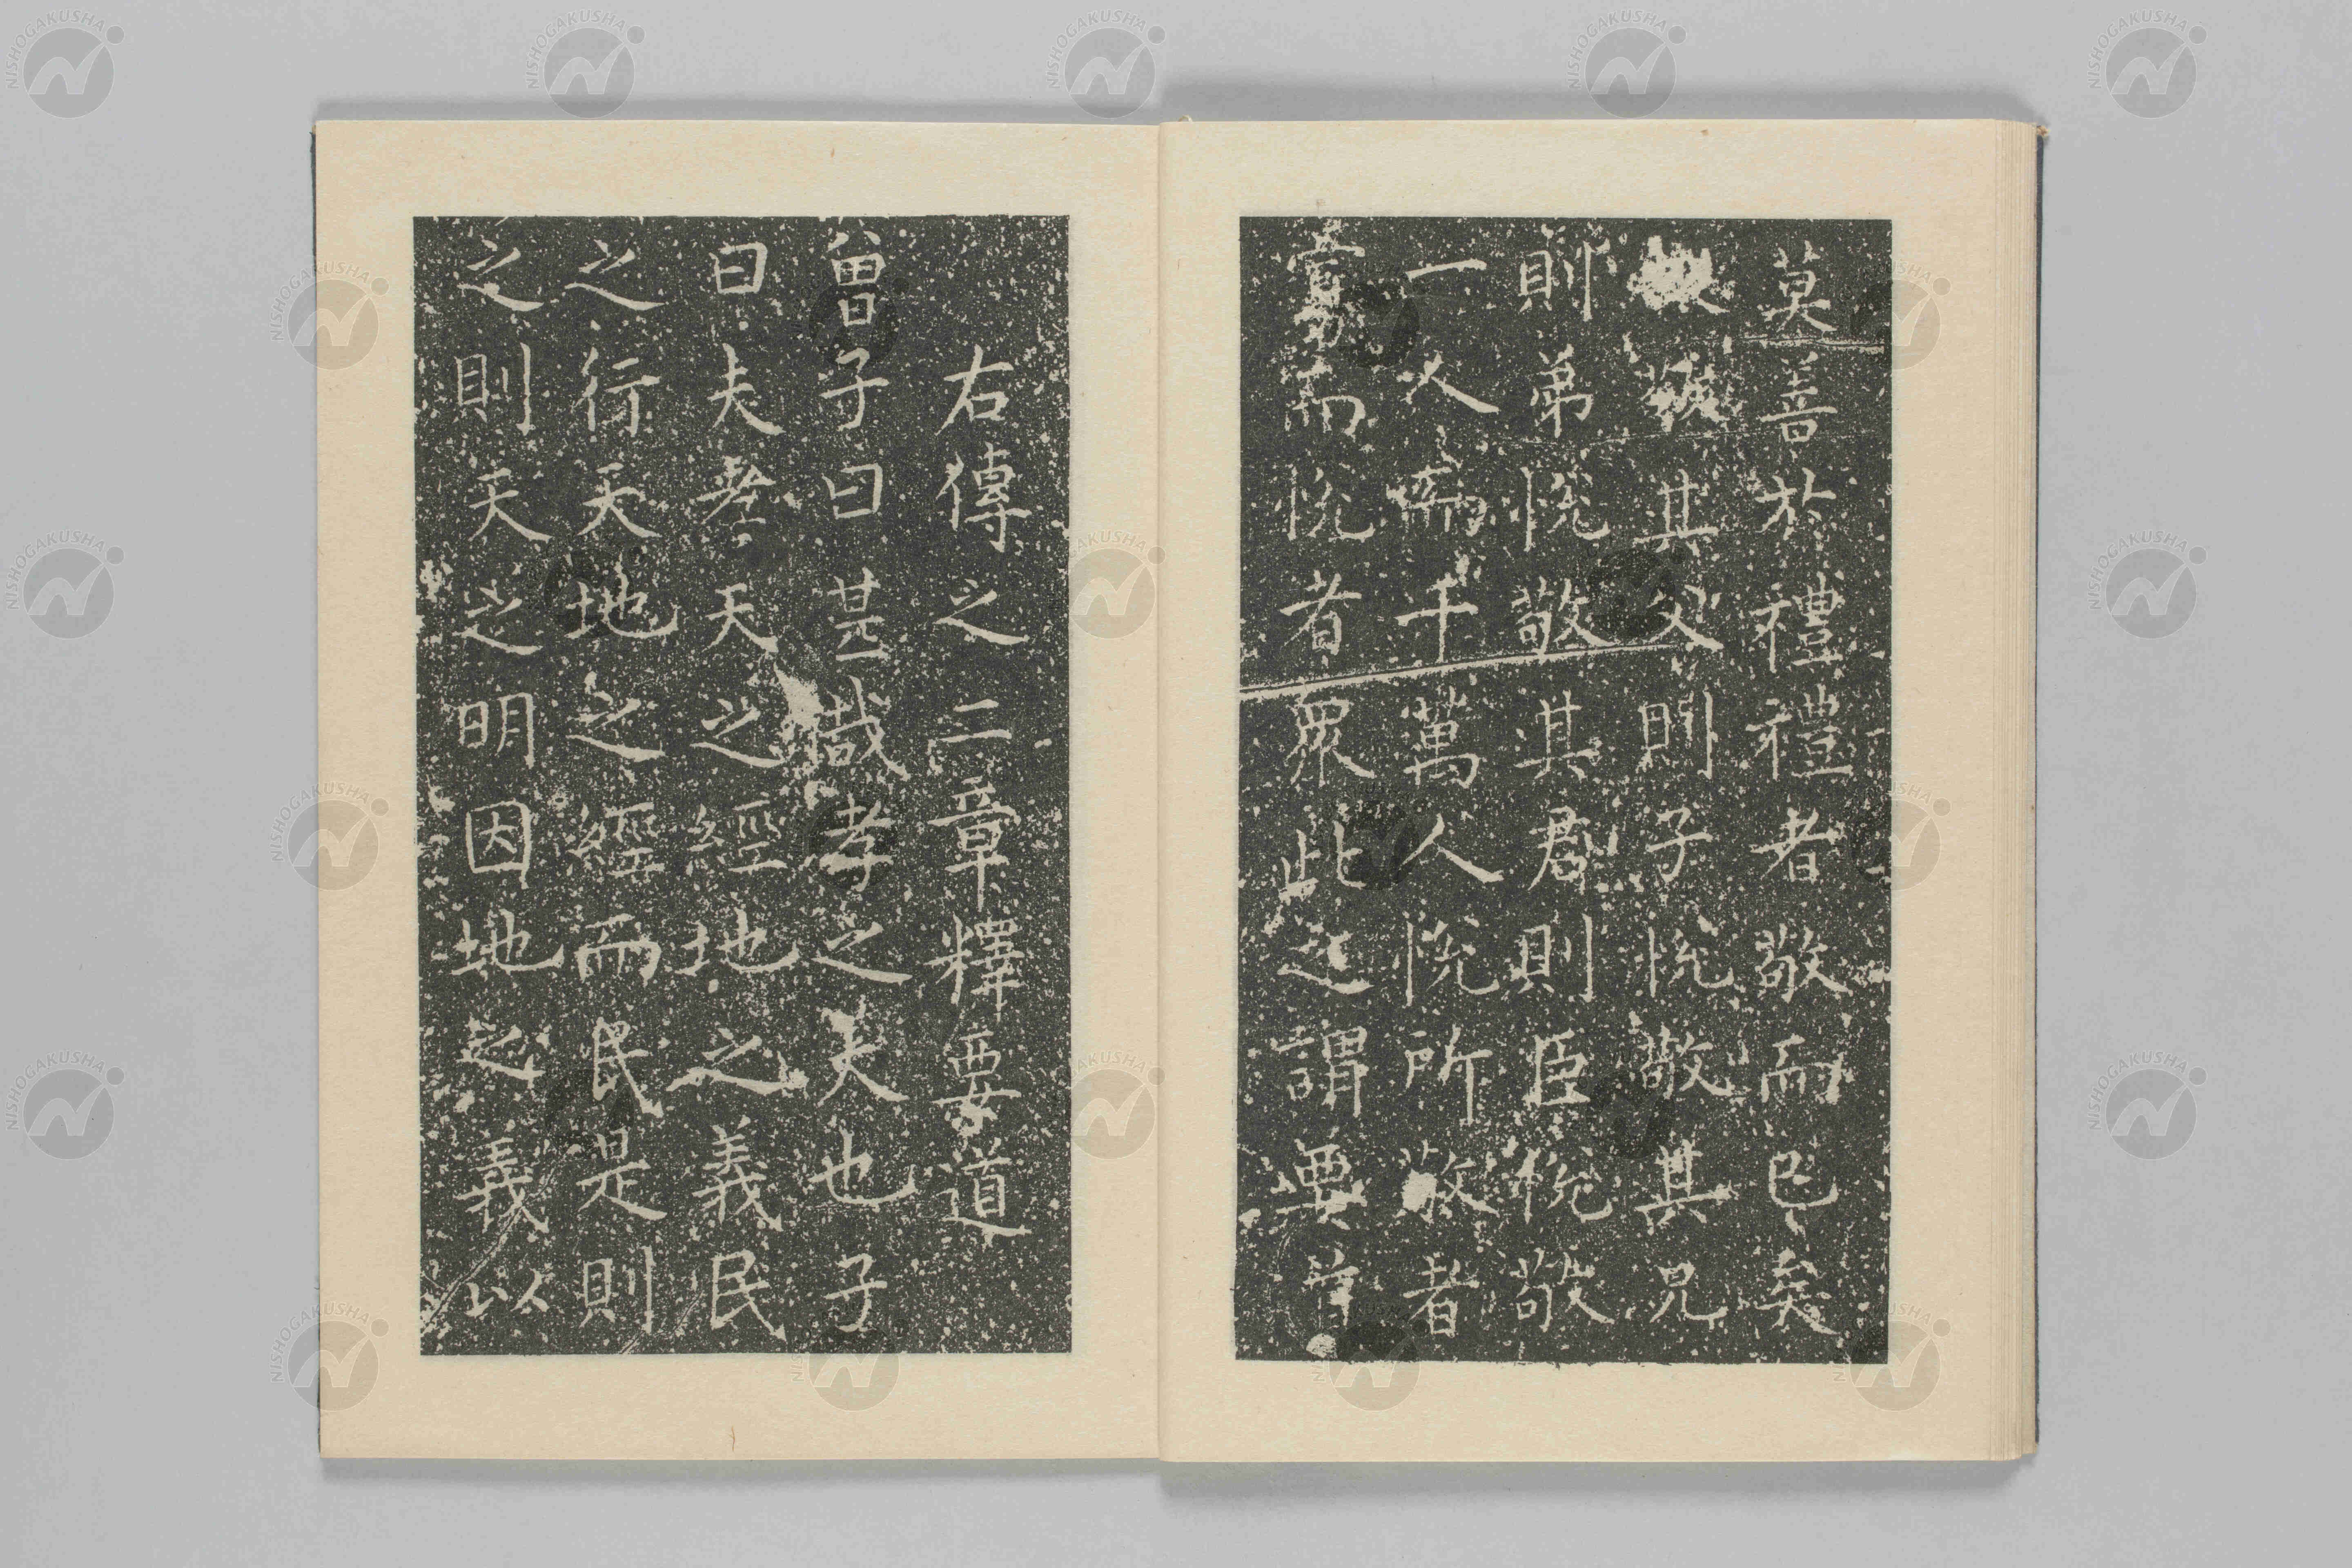 莫善於禮禮者敬而已矣
敬其父則子悅敬其兄
則弟悅敬其君則臣悅敬
一人而千萬人悅所敬者
寡而悅者眾此之謂要
右傳之二章釋要道
曾子曰甚哉孝之大也子
曰夫孝天之經地之義民
之行天地之經而民是則
之則天之明因地之義以
NISHOGAKUSHA